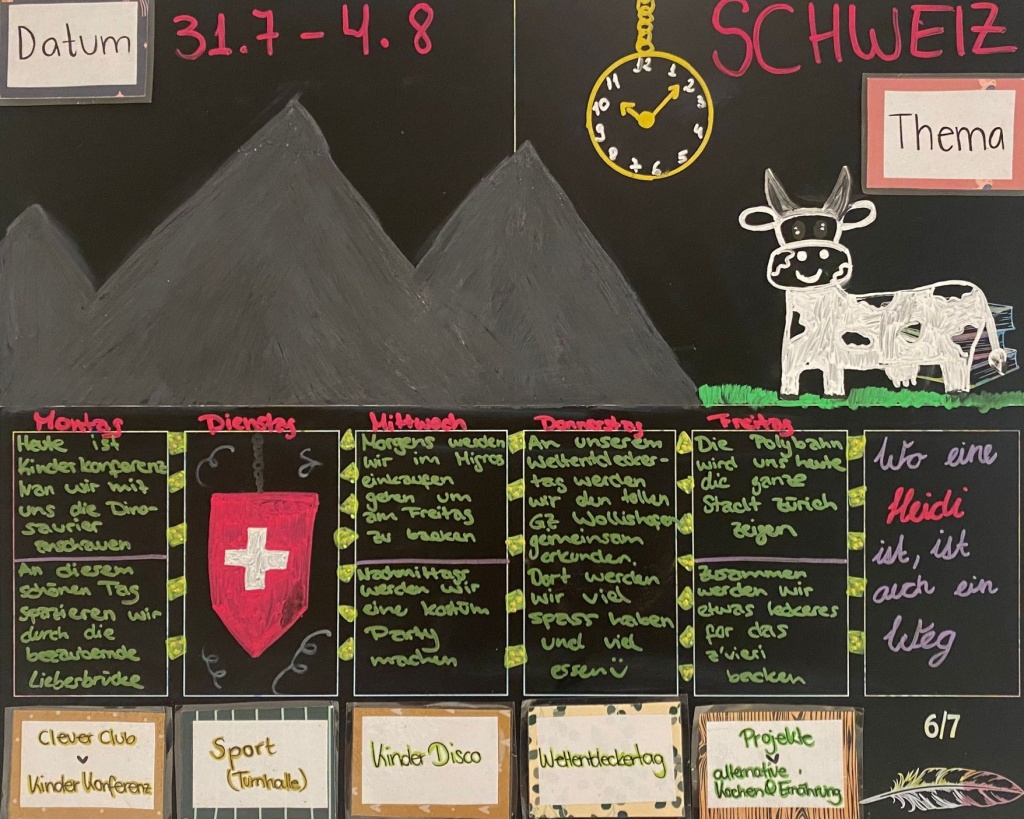 Datum
31.7 - 4.8
SCHWEIZ
Thema
12
1
2
3
4
5
6
7
8
9
10
11
Montag
Heute ist
Kinderkonferenz
wir mit
uns die Dino-
saurier
anschauen
An diesem
schönen Tag
spazieren wir
durch die
bezaubernde
Lieberbrücke
Dienstag
Mittwoch
Morgens werden
wir im Migros
einkaufen
gehen um
am Freitag
zu backen
Nachmittags
werden wir
eine Kostüm
Party
machen
Donnerstag
An unserem
Weltentdecker-
tag werden
wir den tollen
GZ Wollishofen
gemeinsam
erkunden.
Dort werden
wir viel
spass haben
und viel
essen
Freitag
Die Polybahn
wird uns heute
die ganze
Stadt Zürich
zeigen
Zusammen
werden wir
etwas leckeres
für das
z'vieri
backen
Wo eine
Heidi
ist, ist
auch ein
Weg
Clever Club
Kinder Konferenz
Sport
(Turnhalle)
Kinder Disco
Weltentdeckertag
Projekte
alternative
Kochen & Ernährung
6/7